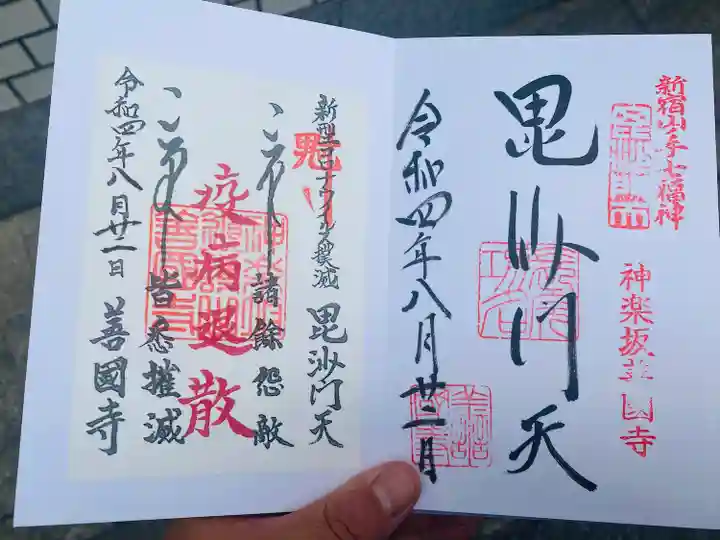 新宿山ノ手七福神
毘沙門天
神楽坂善国寺
令和四年八月廿二日
新型コロナウイルス撲滅
毘沙門天
諸餘怨敵
皆悉摧滅
疫病退散
令和四年八月廿二日
善國寺